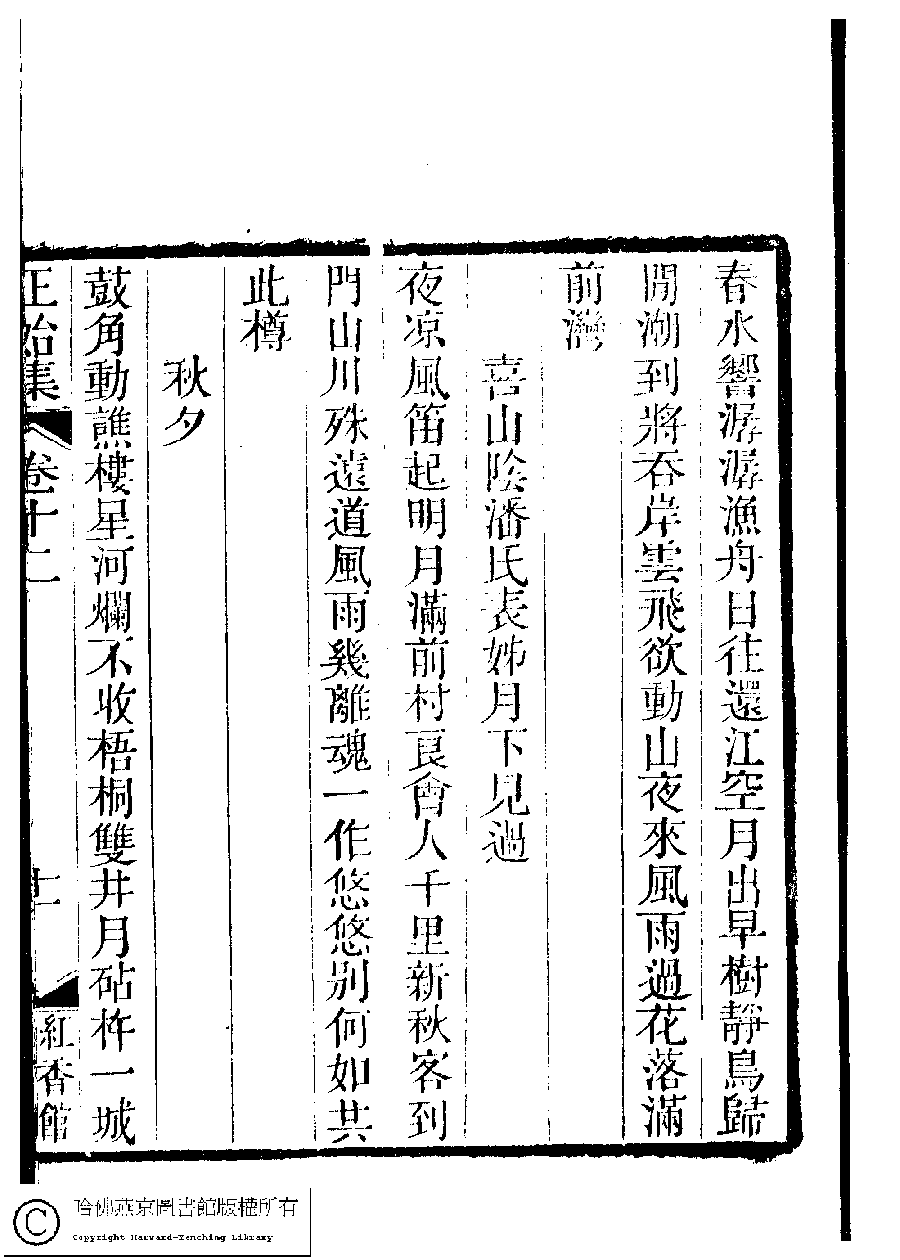 春水響潺潺漁舟日往還江空月出早樹靜鳥歸
閒潮到將吞岸雲飛欲動山夜來風雨過花落滿
前灣
喜山陰潘氏表姊月下見過
夜凉風笛起明月滿前村良會人千里新秋客到
門山川殊遠道風雨幾離魂一作悠悠别何如共
此樽
秋夕
鼓角動譙樓星河爛不收梧桐雙井月砧杵一城
正始集 卷十二 十一 紅香館
哈佛燕京圖書館版權所有
Copyright Harvard-Yenching Library